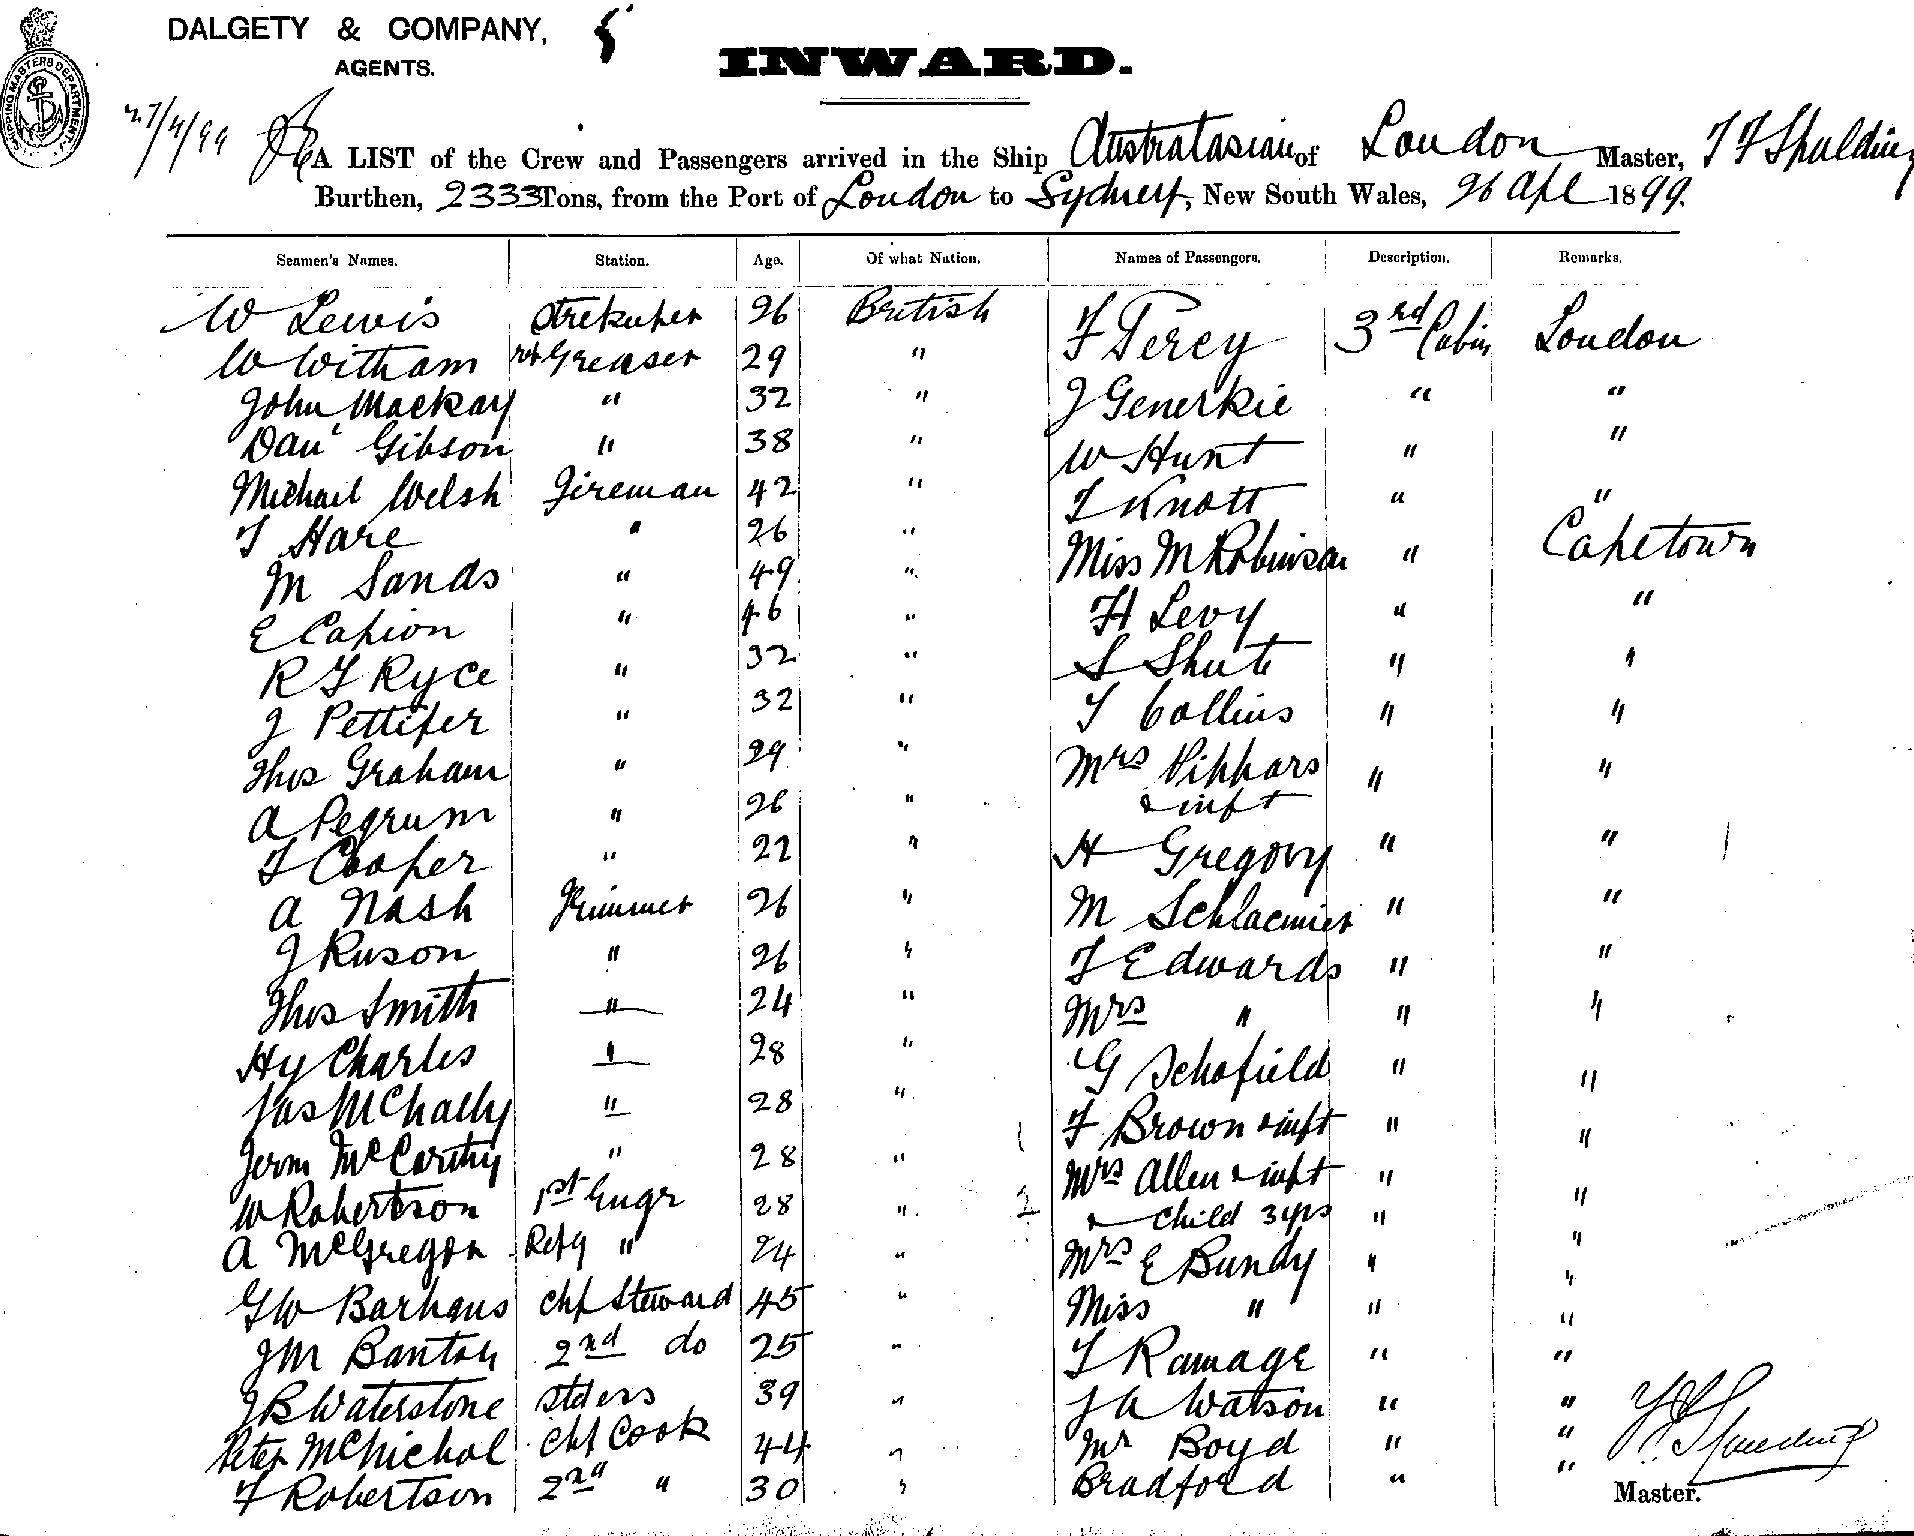 DALGETY & COMPANY,
AGENTS.
INWARD.
27/4/99
A LIST of the Crew and Passengers arrived in the Ship Australasian of London Master, T F Spalding
Burthen, 2333 Tons, from the Port of London to Sydney, New South Wales, 26 Apl 1899.
Seamen's Names. Station. Age. Of what Nation. Names of Passengers. Description. Remarks.
W Lewis 26 British F Percy 3rd Cabin London
W Witham Greaser 29 " J Generkie " "
John Mackay " 32 " W Hunt " "
Danl Gibson " 38 " T Knott " "
Michael Welsh Fireman 42 " Miss M Robinson " Capetown
T Hare " 26 " H Levy " "
M Sands " 49 " S Shute " "
E Capion " 46 " T Collins " "
R F Ryce " 32 " Mrs Pippars " "
J Pettifer " 32 " & inft
Thos Graham " 29 " H Gregory " "
A Pegrum " 26 " M " "
F Cooper " 22 " F Edwards " "
A Nash Trimmer 26 " Mrs " " "
J Ruson " 26 " G Schofield " "
Thos Smith " 24 " F Brown & inft " "
Hy Charles " 28 " Mrs Allen & inft " "
Jas " 28 " & Child 3 yrs " "
Jerm McCarthy " 28 " Mrs E Bundy " "
W Robertson 1st Engr 28 " Miss " " "
A McGregor Refg " 24 " T Ramage " "
G W Barhans Chf Steward 45 " J A Watson " "
J M Banton 2nd do 25 " Mr Boyd " "
J B Waterstone Stdess 39 " Bradford " "
Peter McNichol Chf Cook 44 "
F Robertson 2nd " 30 "
T F Spalding
Master.